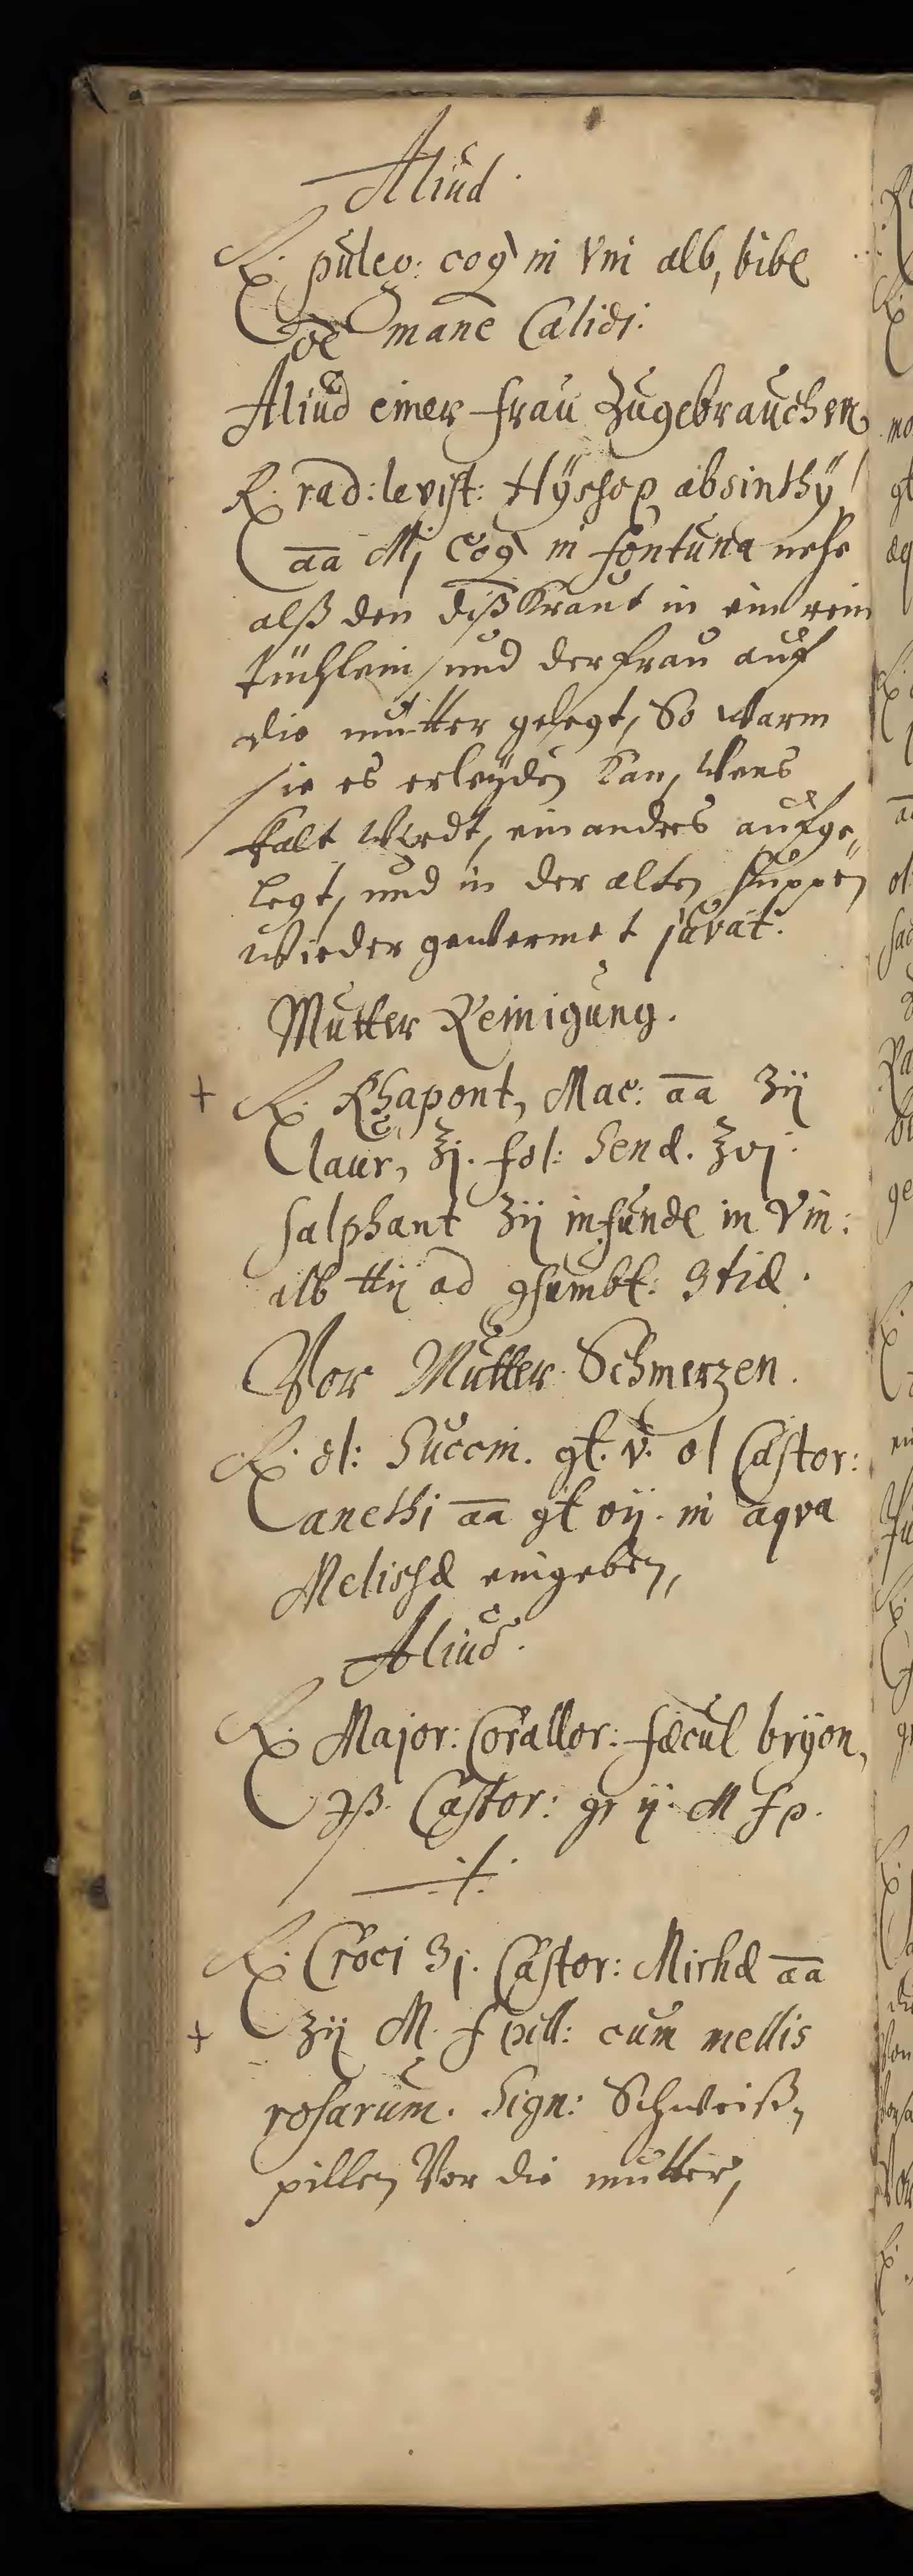 Aliud.
℞. puleg: coq in Vni alb, bibe
de mane Calidi:
Aliud einer frau Zugebrauchen
℞. rad: levist: Hÿssop absinthÿ
āā Mj coq in fontana nehe
alß den diß Kraut in ein rein
tüchlein / und der frau auf
die mutter gelegt, So Warm
sie es erleÿden Kan, Wens
Kalt Wirdt, ein anders aufge„
legt, und in der alten suppen
Wieder gewermet juvat.
Mutter Reinigung.
+ ℞. Rhapont, Mac: āā ʒij
laur, ʒj. fol: Senæ. ʒvj.
salphant ʒij infunde in Vin:
alb ℔ij ad gsumbt: 3tiæ.
Vor Mutter Schmerzen.
℞. ol: Succin. gt. v. ol Castor:
anethi āā gt vij. in aqva
Melissæ eingeben,
Aliud.
℞. Major: Corallor: fæcul brÿon,
℈ß. Castor: gr ij. M f p.
·/.
℞. Croci ʒj. Castor: Mirhæ āā
+ ʒij M. f pill: cum mellis
rosarum. Sign: Schweiß„
pillen Vor die mutter,